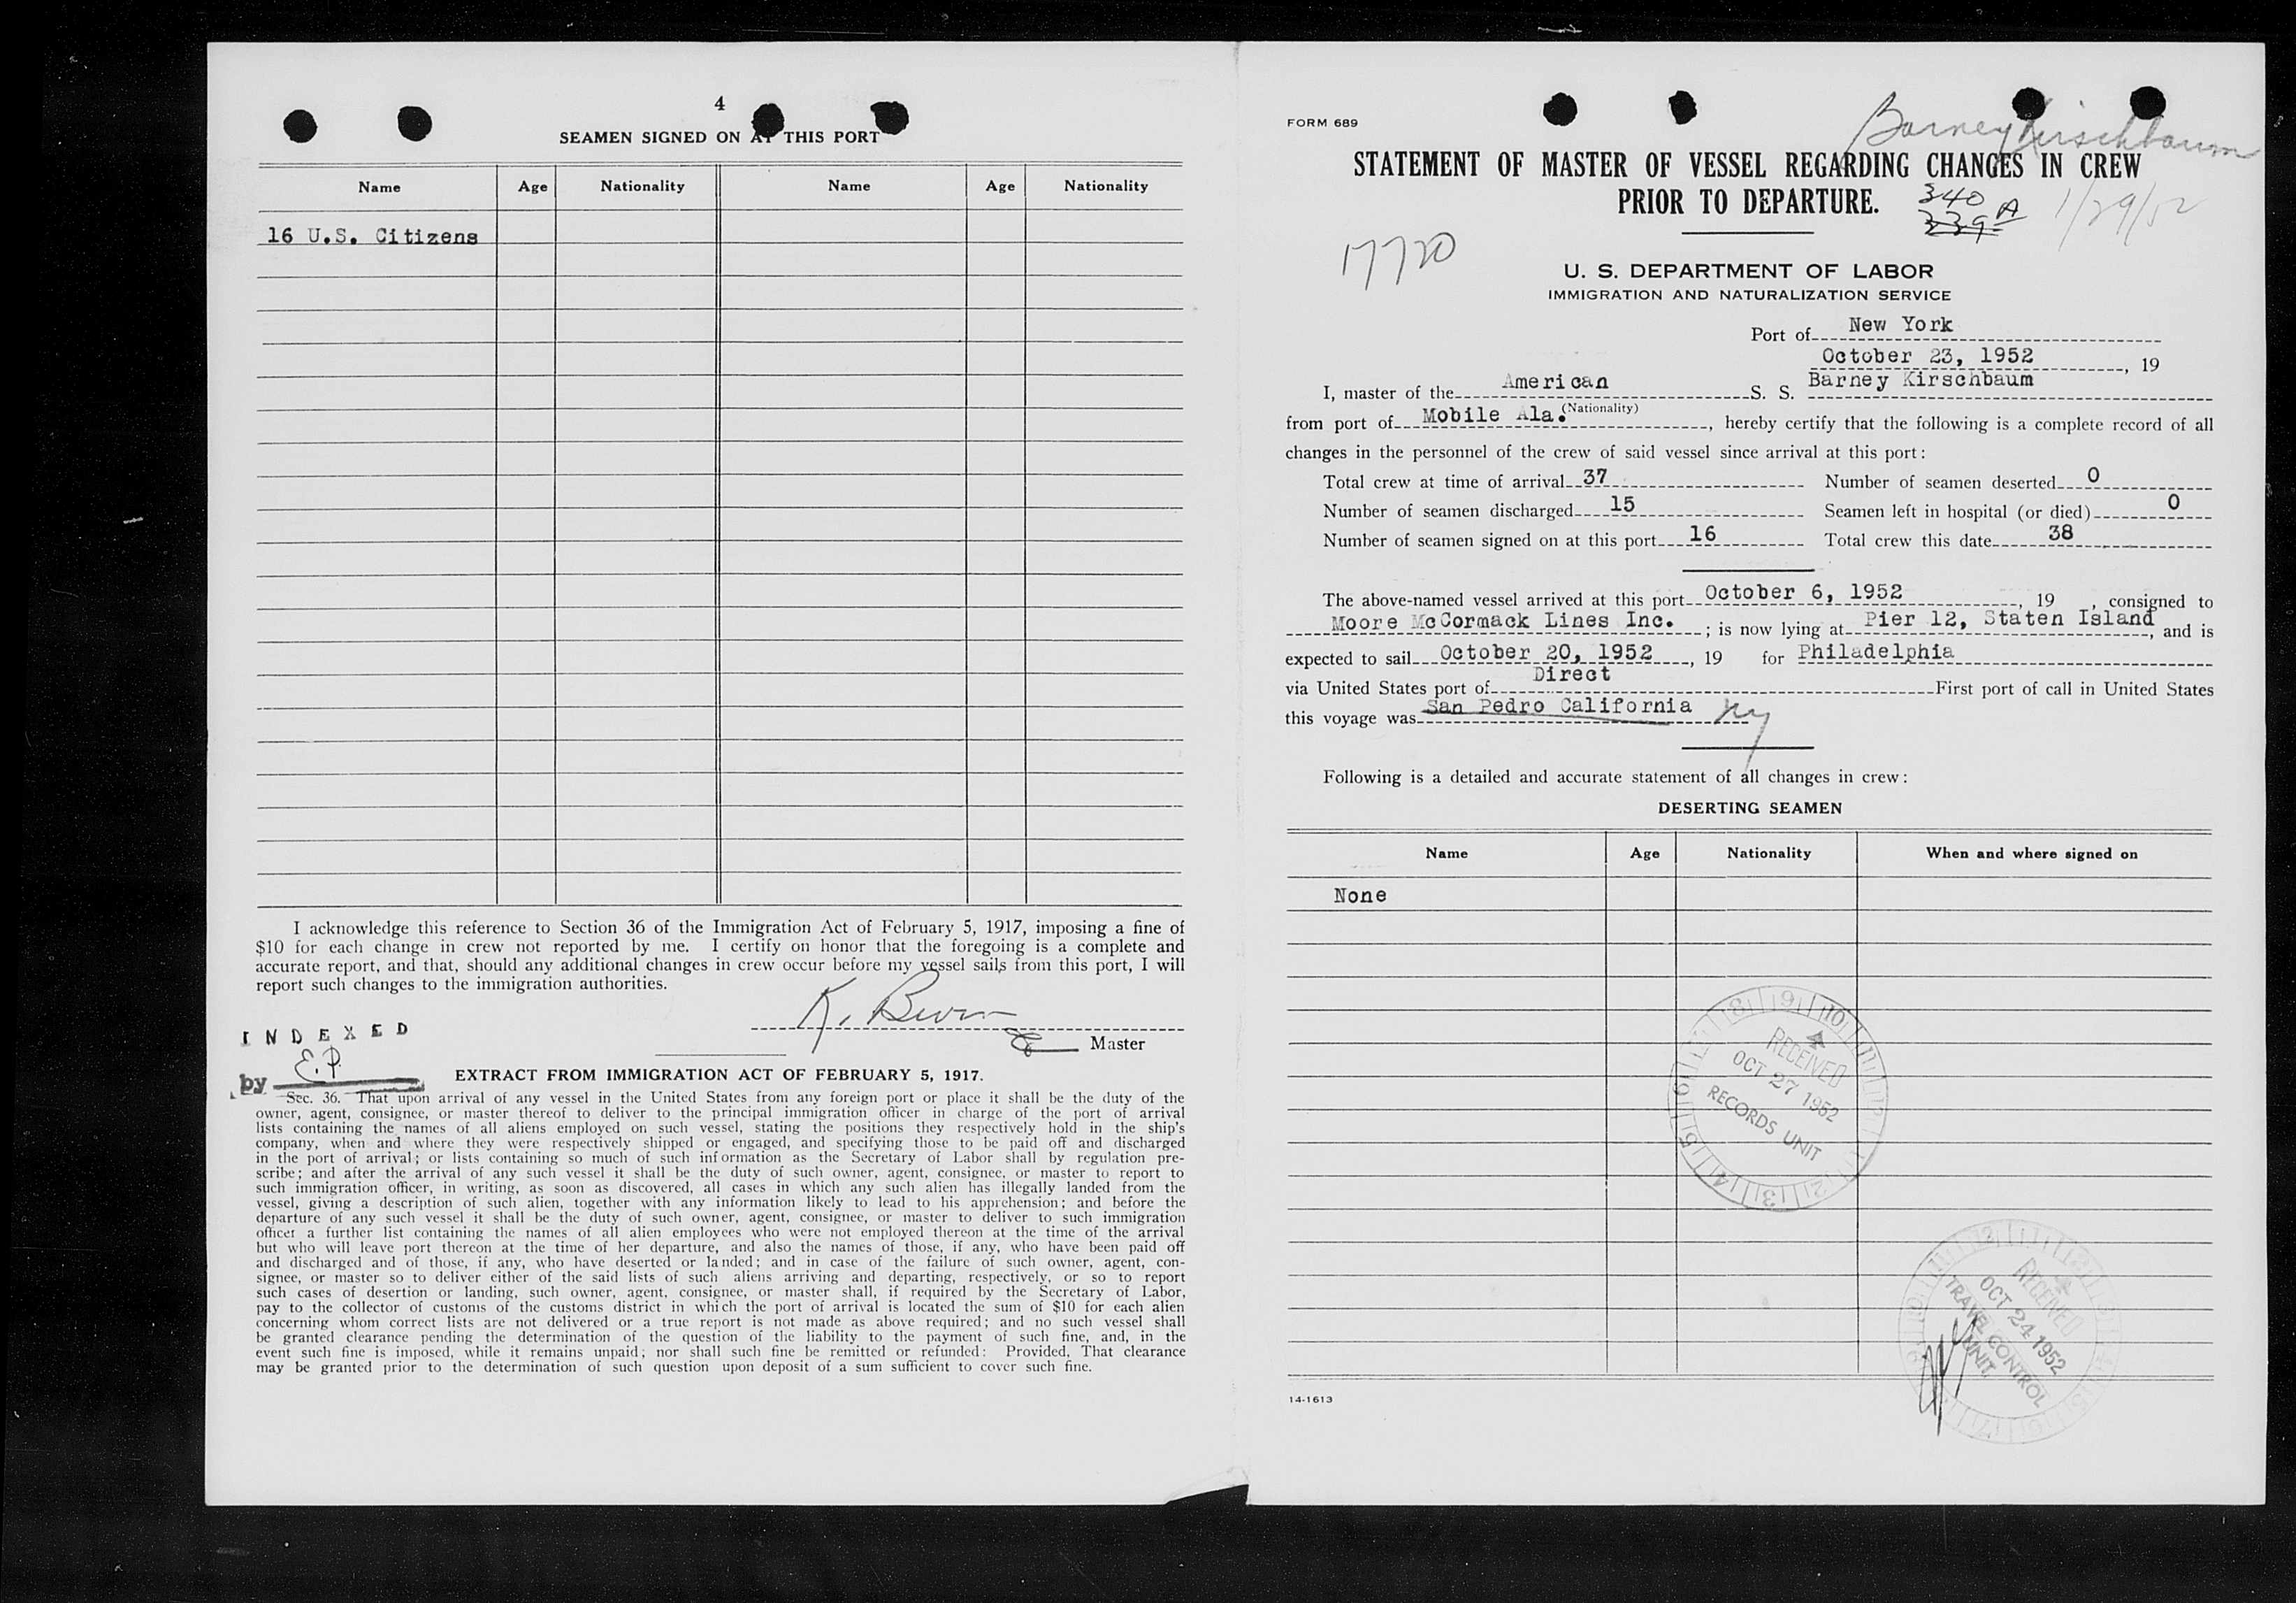 4
SEAMEN SIGNED ON AT THIS PORT
Name Age Nationality Name Age Nationality
16 U.S. Citizens
I acknowledge this reference to Section 36 of the Immigration Act of February 5, 1917, imposing a fine of
$10 for each change in crew not reported by me. I certify on honor that the foregoing is a complete and
accurate report, and that, should any additional changes in crew occur before my vessel sails from this port, I will
report such changes to the immigration authorities.
K.
Master
INDEXED
by E.P.
EXTRACT FROM IMMIGRATION ACT OF FEBRUARY 5, 1917.
Sec. 36. That upon arrival of any vessel in the United States from any foreign port or place it shall be the duty of the
owner, agent, consignee, or master thereof to deliver to the principal immigration officer in charge of the port of arrival
lists containing the names of all aliens employed on such vessel, stating the positions they respectively hold in the ship's
company, when and where they were respectively shipped or engaged, and specifying those to be paid off and discharged
in the port of arrival; or lists containing so much of such information as the Secretary of Labor shall by regulation pre-
scribe; and after the arrival of any such vessel it shall be the duty of such owner, agent, consignee, or master to report to
such immigration officer, in writing, as soon as discovered, all cases in which any such alien has illegally landed from the
vessel, giving a description of such alien, together with any information likely to lead to his apprehension; and before the
departure of any such vessel it shall be the duty of such owner, agent, consignee, or master to deliver to such immigration
officer a further list containing the names of all alien employees who were not employed thereon at the time of the arrival
but who will leave port thereon at the time of her departure, and also the names of those, if any, who have been paid off
and discharged and of those, if any, who have deserted or landed; and in case of the failure of such owner, agent, con-
signee, or master so to deliver either of the said lists of such aliens arriving and departing, respectively, or so to report
such cases of desertion or landing, such owner, agent, consignee, or master shall, if required by the Secretary of Labor,
pay to the collector of customs of the customs district in which the port of arrival is located the sum of $10 for each alien
concerning whom correct lists are not delivered or a true report is not made as above required; and no such vessel shall
be granted clearance pending the determination of the question of the liability to the payment of such fine, and, in the
event such fine is imposed, while it remains unpaid; nor shall such fine be remitted or refunded: Provided, That clearance
may be granted prior to the determination of such question upon deposit of a sum sufficient to cover such fine.
FORM 689
Barney Kirschbaum
STATEMENT OF MASTER OF VESSEL REGARDING CHANGES IN CREW
PRIOR TO DEPARTURE.
340 A
339
1/29/52
17720
U. S. DEPARTMENT OF LABOR
IMMIGRATION AND NATURALIZATION SERVICE
Port of New York
October 23, 1952, 19
I, master of the American S. S. Barney Kirschbaum
(Nationality)
from port of Mobile Ala., hereby certify that the following is a complete record of all
changes in the personnel of the crew of said vessel since arrival at this port:
Total crew at time of arrival 37 Number of seamen deserted 0
Number of seamen discharged 15 Seamen left in hospital (or died) 0
Number of seamen signed on at this port 16 Total crew this date 38
The above-named vessel arrived at this port October 6, 1952, 19 , consigned to
Moore McCormack Lines Inc. ; is now lying at Pier 12, Staten Island, and is
expected to sail October 20, 1952, 19 for Philadelphia
via United States port of Direct First port of call in United States
this voyage was San Pedro California NY
Following is a detailed and accurate statement of all changes in crew:
DESERTING SEAMEN
Name Age Nationality When and where signed on
None
RECEIVED
OCT 27 1952
RECORDS UNIT
RECEIVED
OCT 24 1952
TRAVEL CONTROL
UNIT
14-1613